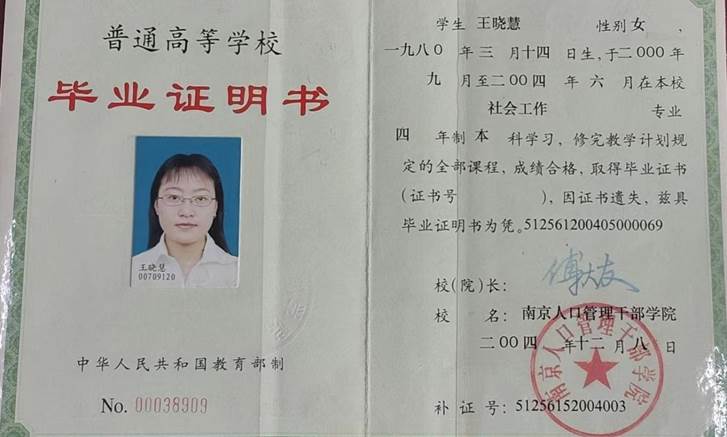 普通高等学校
毕业证明书
王晓慧
00709120
中华人民共和国教育部制
No. 00038909
学生 王晓慧 性别 女 ，
一九八〇 年 三 月 十四 日生，于 二000 年
九 月至 二00四 年 六 月在本校
社会工作 专业
四 年制 本 科学习，修完教学计划规
定的全部课程，成绩合格，取得毕业证书
(证书号 )，因证书遗失，兹具
毕业证明书为凭。512561200405000069
校(院)长： 傅大友
校 名： 南京人口管理干部学院
二00四 年 十二 月 八 日
南京人口管理干部学院
补 证 号： 51256152004003